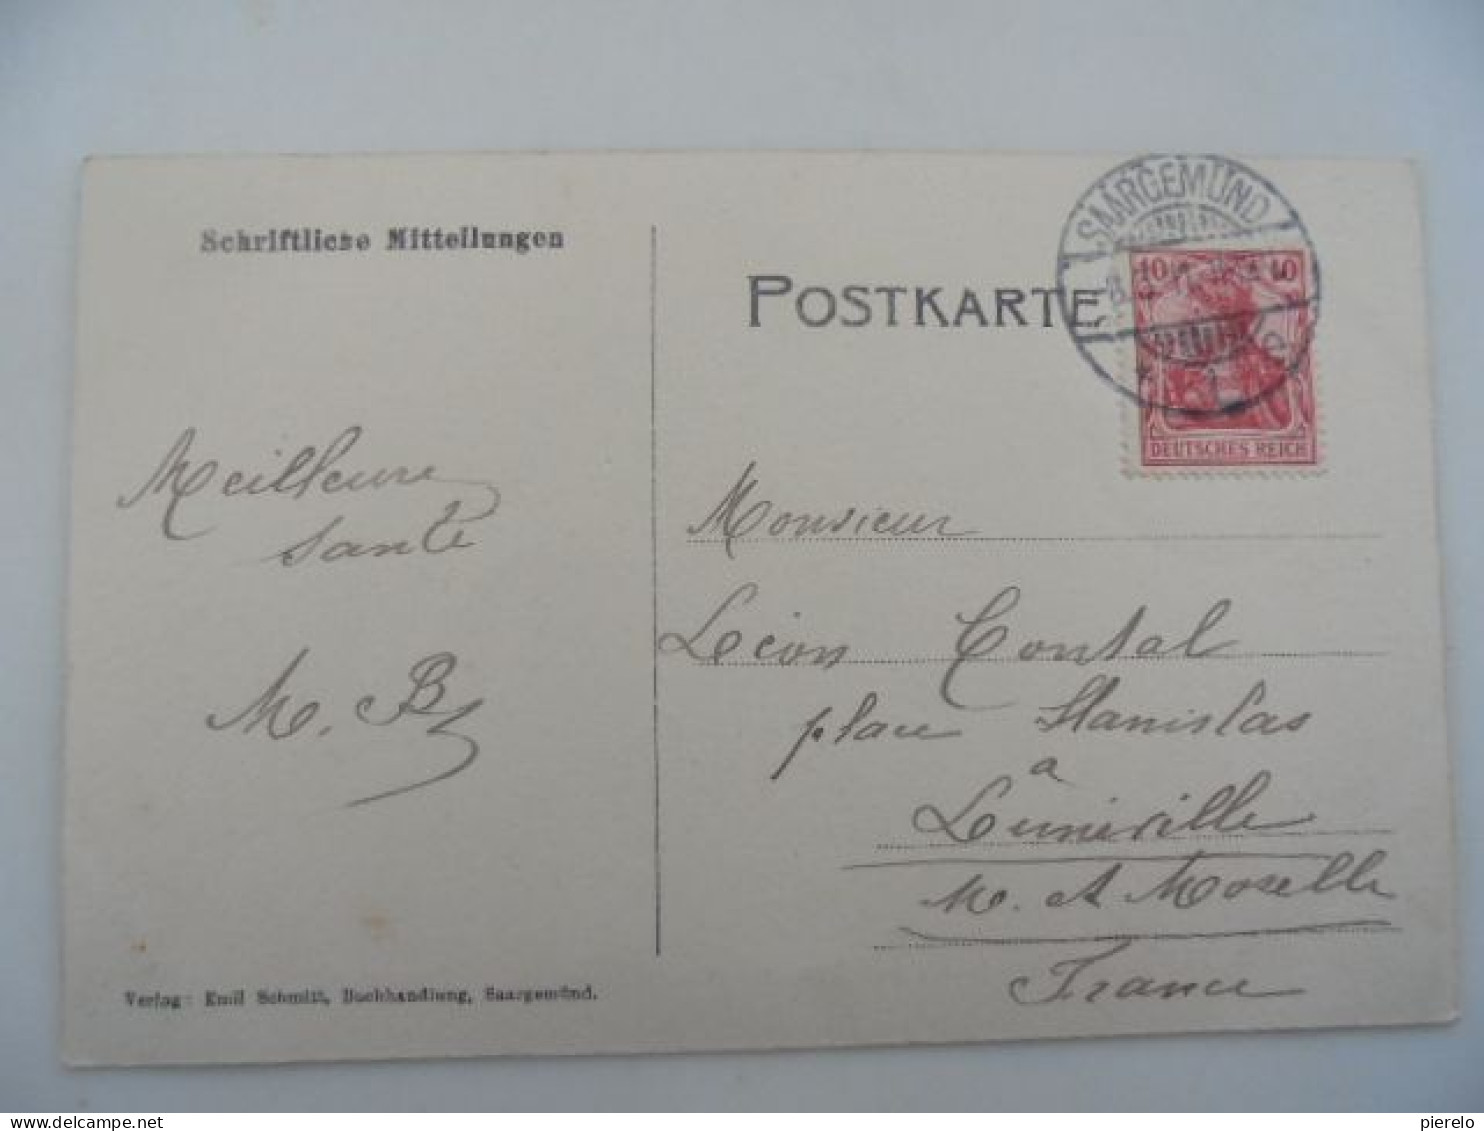 Schriftliche Mitteilungen
POSTKARTE
SAARGEMÜND
10 10
DEUTSCHES REICH
Meilleure
santé
M. B
Monsieur
Léon Contal
place Stanislas
a
Lunéville
M. et Moselle
France
Verlag: Emil Schmitt, Buchhandlung, Saargemünd.
pierelo
delcampe.net